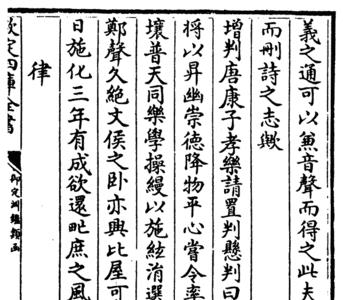 義之通可以兼音聲而得之此夫
而刪詩之志歟
增判唐康子孝樂請置判懸判曰
將以昇幽崇德降物平心當令率
壤普天同樂學操縵以施絃湑選
鄭聲久絶文侯之卧亦興比屋可
日施化三年有成欲還甿庶之風
律
欽定四庫全書
御定淵鑑類函